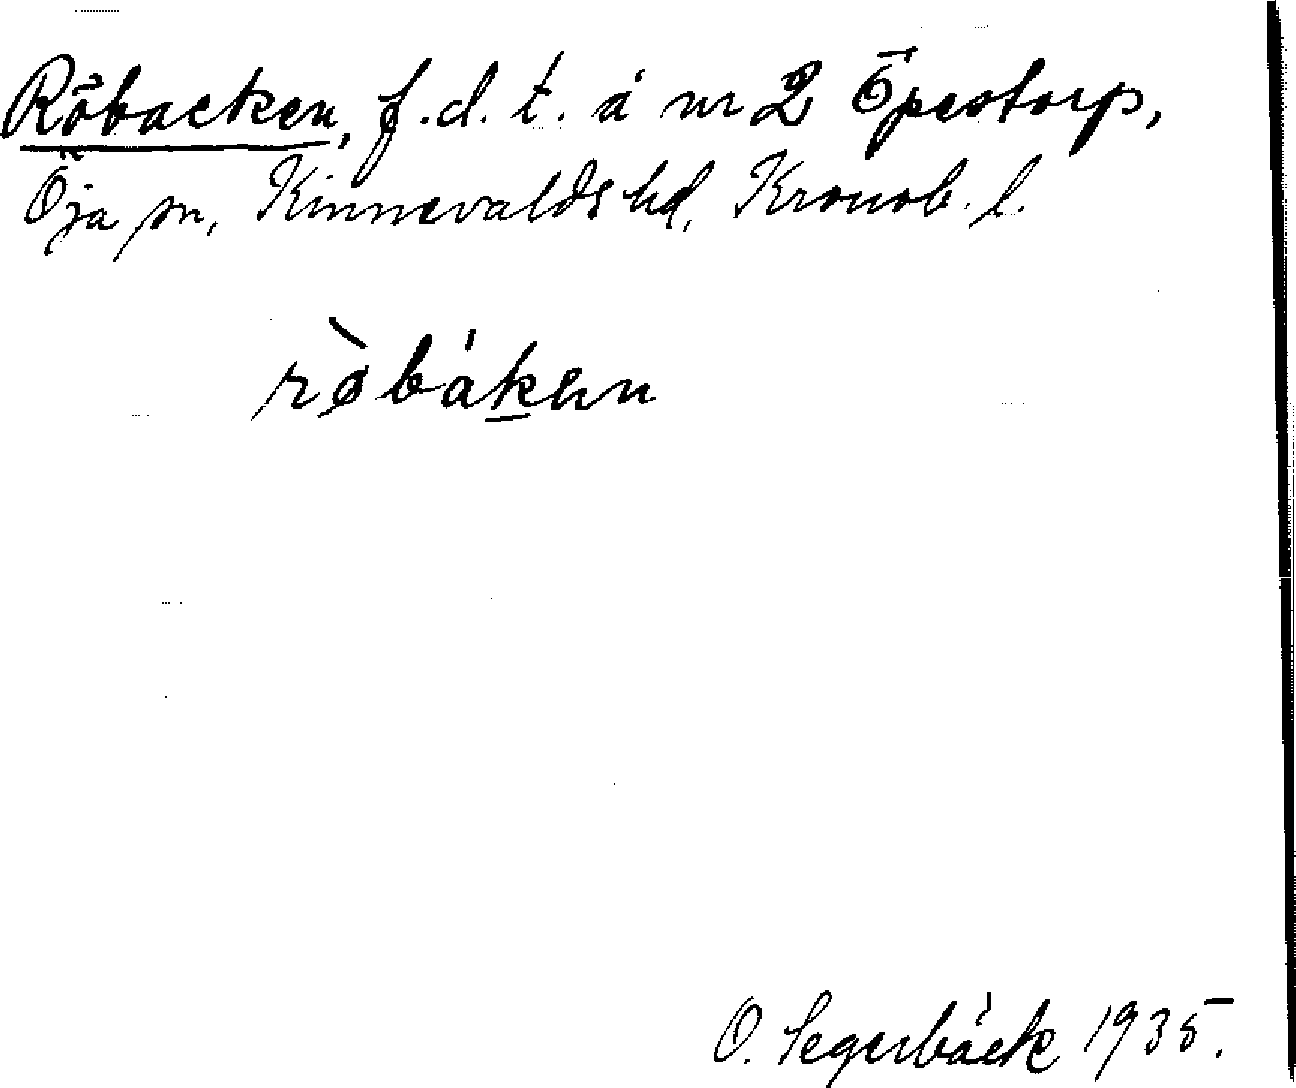 Röbacken, f.d.t. å nr 2 Öpestorp,
Öja sn, Kinnevalds hd, Kronob. l.
rø̀báken
O. Segerbäck 1935.